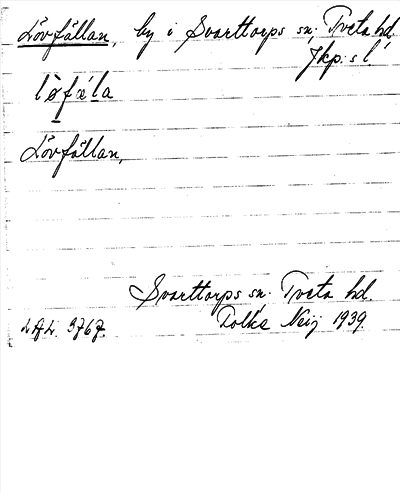 Lövfällan, by i Svarttorps sn; Tveta hd.
Jkp:s l.
lo̱fæla
Lövfällan,
Svarttorps sn. Tveta hd.
Folke Neij 1939.
L.A.L. 3767.